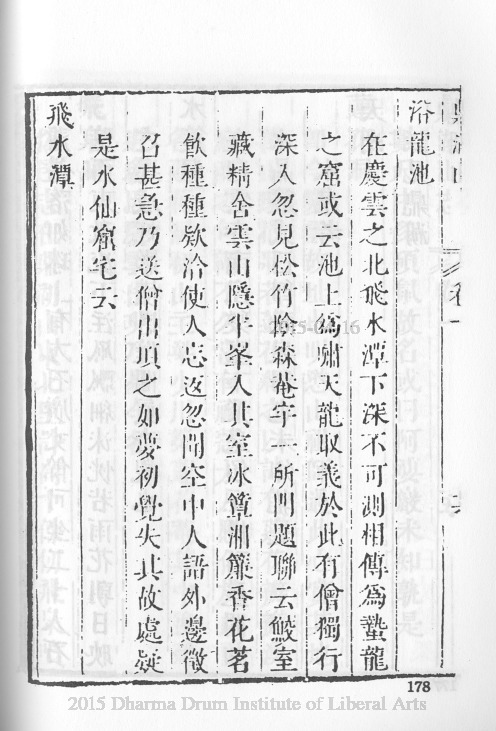 浴龍池
在慶雲之北飛水潭下深不可測相傳爲蟄龍
之窟或云池上爲嘯天龍取義於此有僧獨行
深入忽見松竹陰森菴宇一所門題聯云鮫室
藏精舍雲山隱半峯入其室冰簟湘簾香花茗
飲種種欵洽使人忘返忽聞空中人語外邊徵
召甚急乃送僧出頂之如夢初覺失其故處疑
是水仙窟宅云
飛水潭
178
2015 Dharma Drum Institute of Liberal Arts